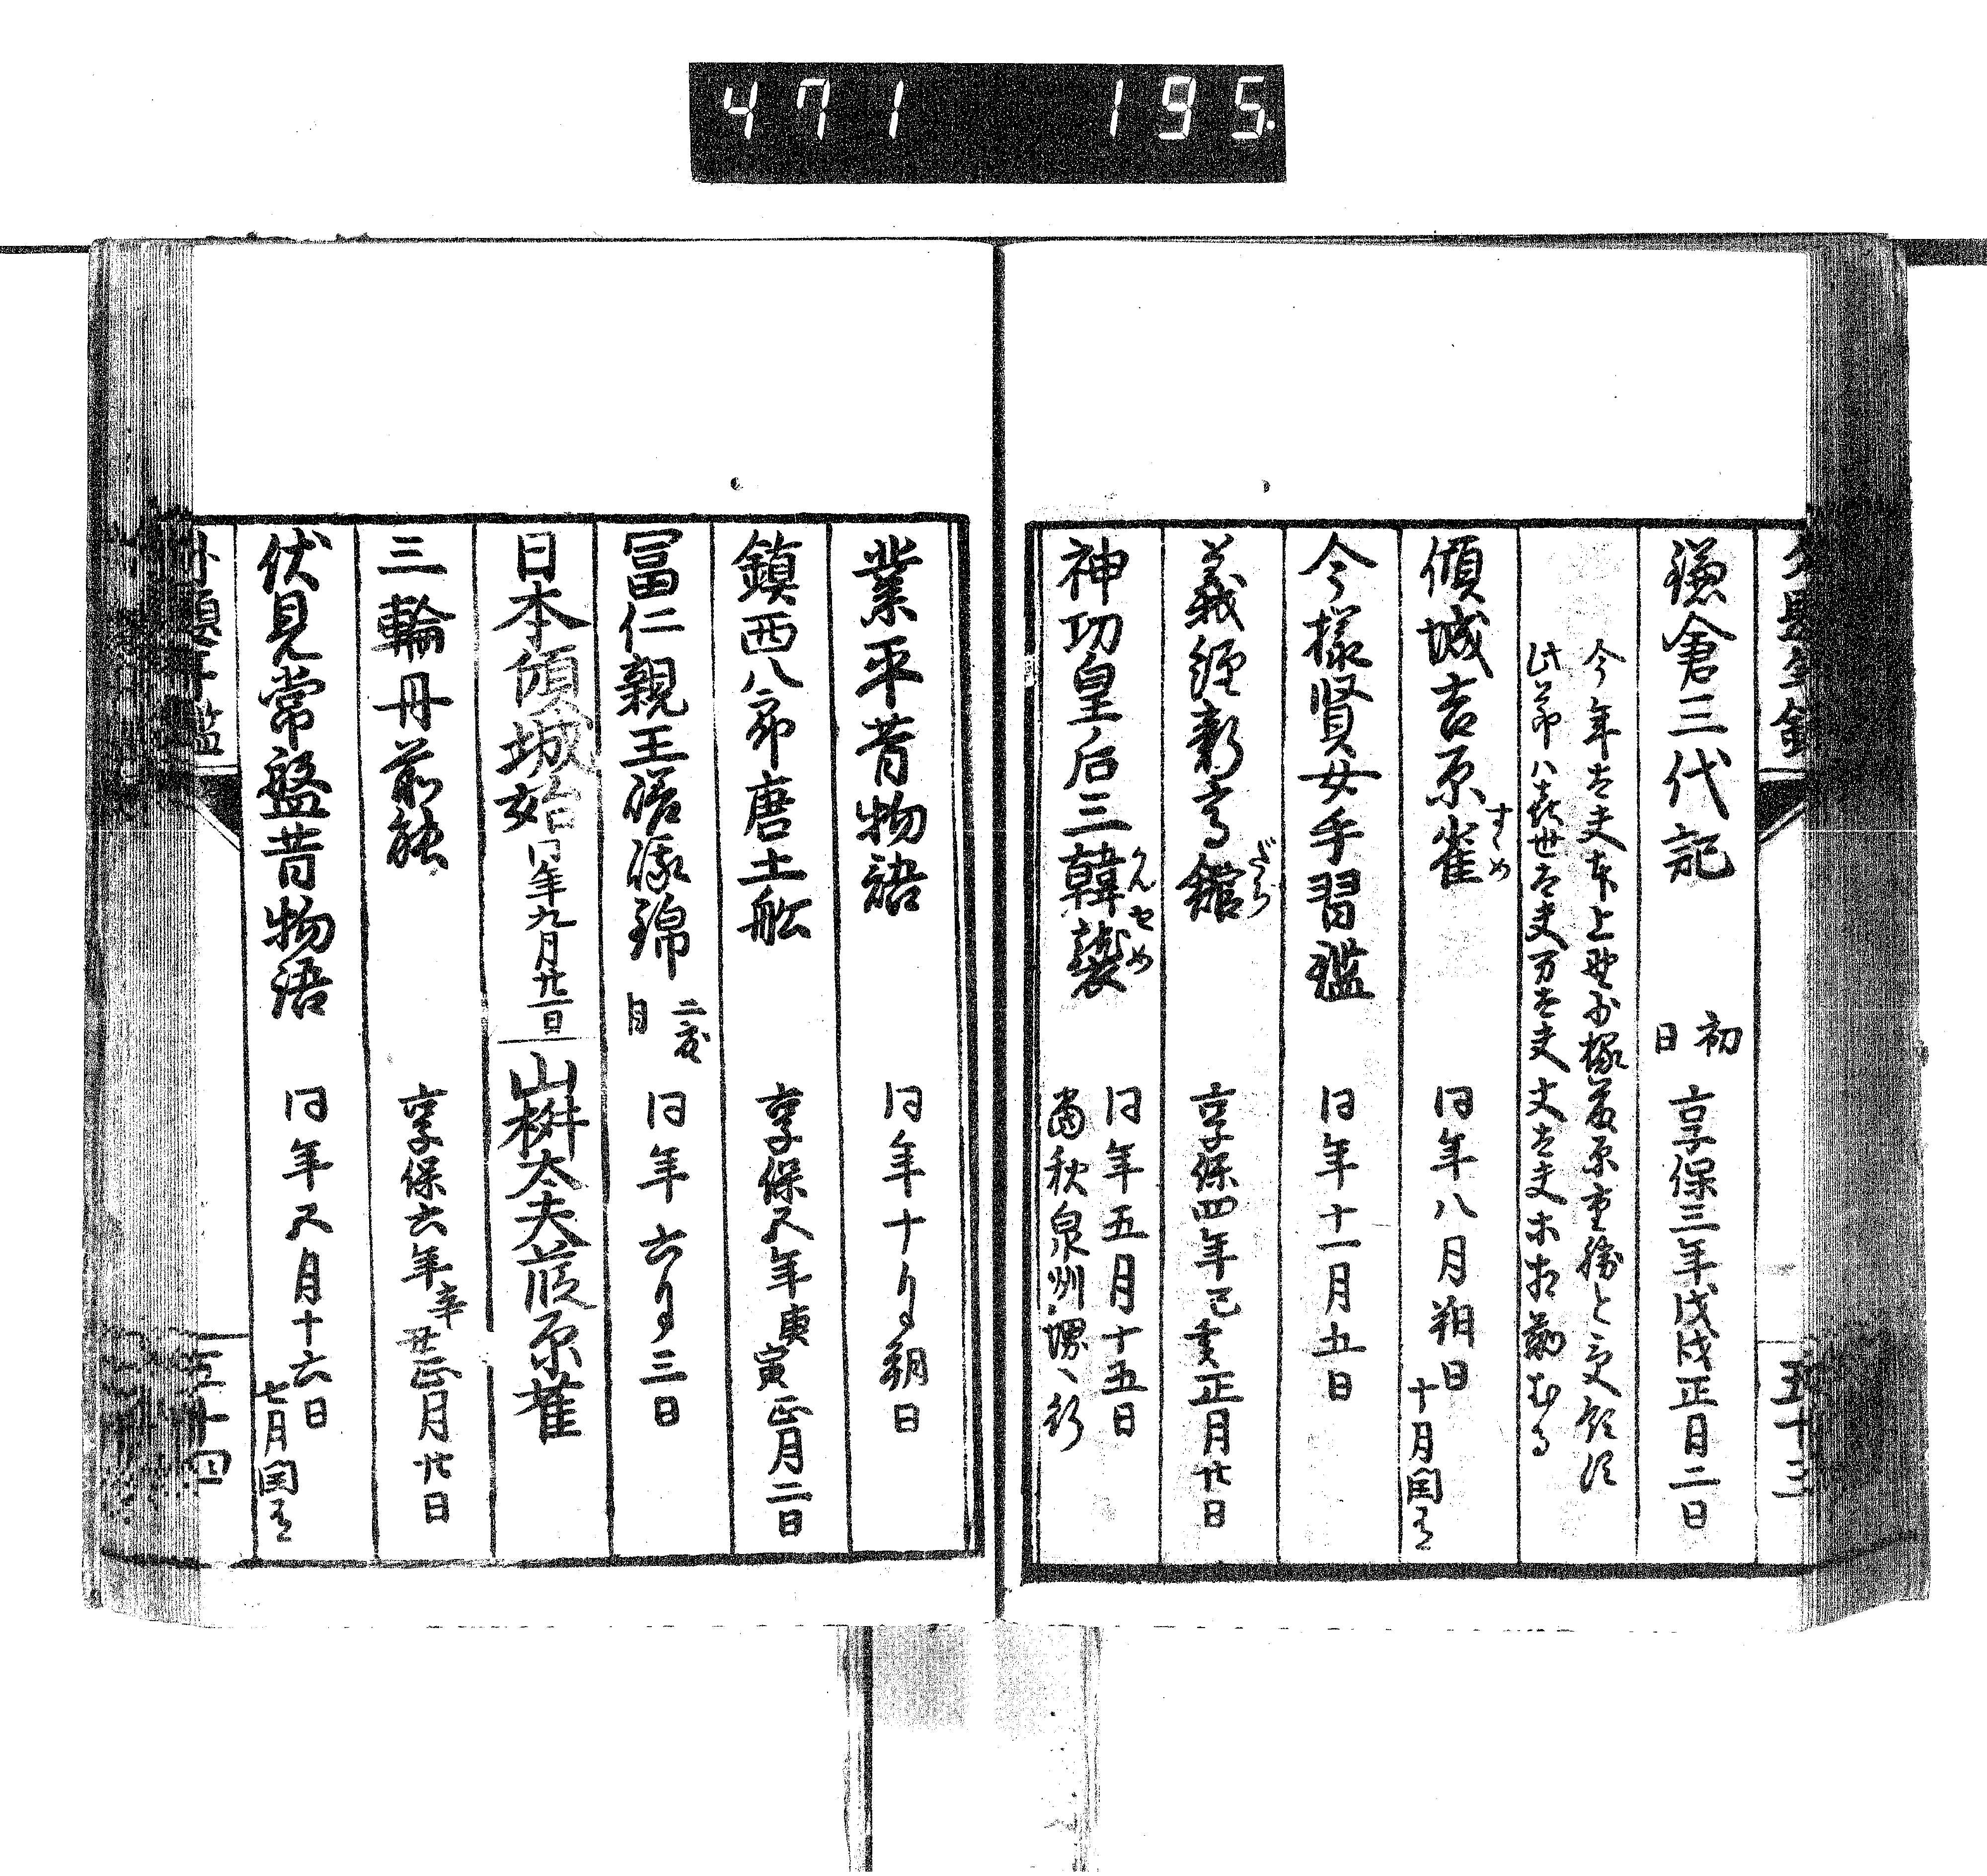 471 195.
鎌倉三代記 初日 享保三年戊戌正月二日
今年太夫本上野少掾藤原重勝と
此節八喜世太夫万太夫丈太夫
傾城吉原雀 すゞめ 同年八月朔日 十月閏有
今様賢女手習鑑 同年十一月五日
義経新高舘 だち 享保四年己亥正月廿日
神功皇后三韓襲 かんせめ 同年五月十五日
当秋泉州堺へ行
業平昔物語 同年十月朔日
鎮西八郎唐土舩 享保五年庚寅正月二日
冨仁親王嵯峨錦 二度目 同年六月三日
日本傾城始 同年九月廿一日 山桝太夫葭原雀
三輪丹前能 享保六年辛丑正月廿日
伏見常盤昔物語 同年五月十六日 七月閏有
五十三
五十四